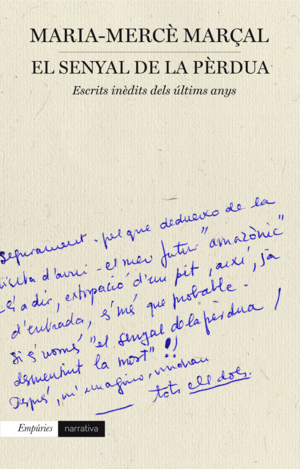 MARIA-MERCÈ MARÇAL
EL SENYAL DE LA PÈRDUA
Escrits inèdits dels últims anys
segurament - pel que dedueixo de la
visita d'avui - el meu futur "amazònic"
- és a dir, extirpació d'un pit, així, ja
d'entrada, és més que probable.
Si és només "el senyal de la pèrdua /
desmentint la mort"!!
Després, m'imagino, vindran
tots els dols.
Empúries narrativa